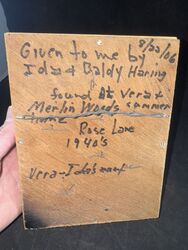 8/22/06
Given to me by
Ida & Baldy Haring
found at Vera &
Merlin Woods summer
home
Rose Lane
1940's
Vera-Ida's